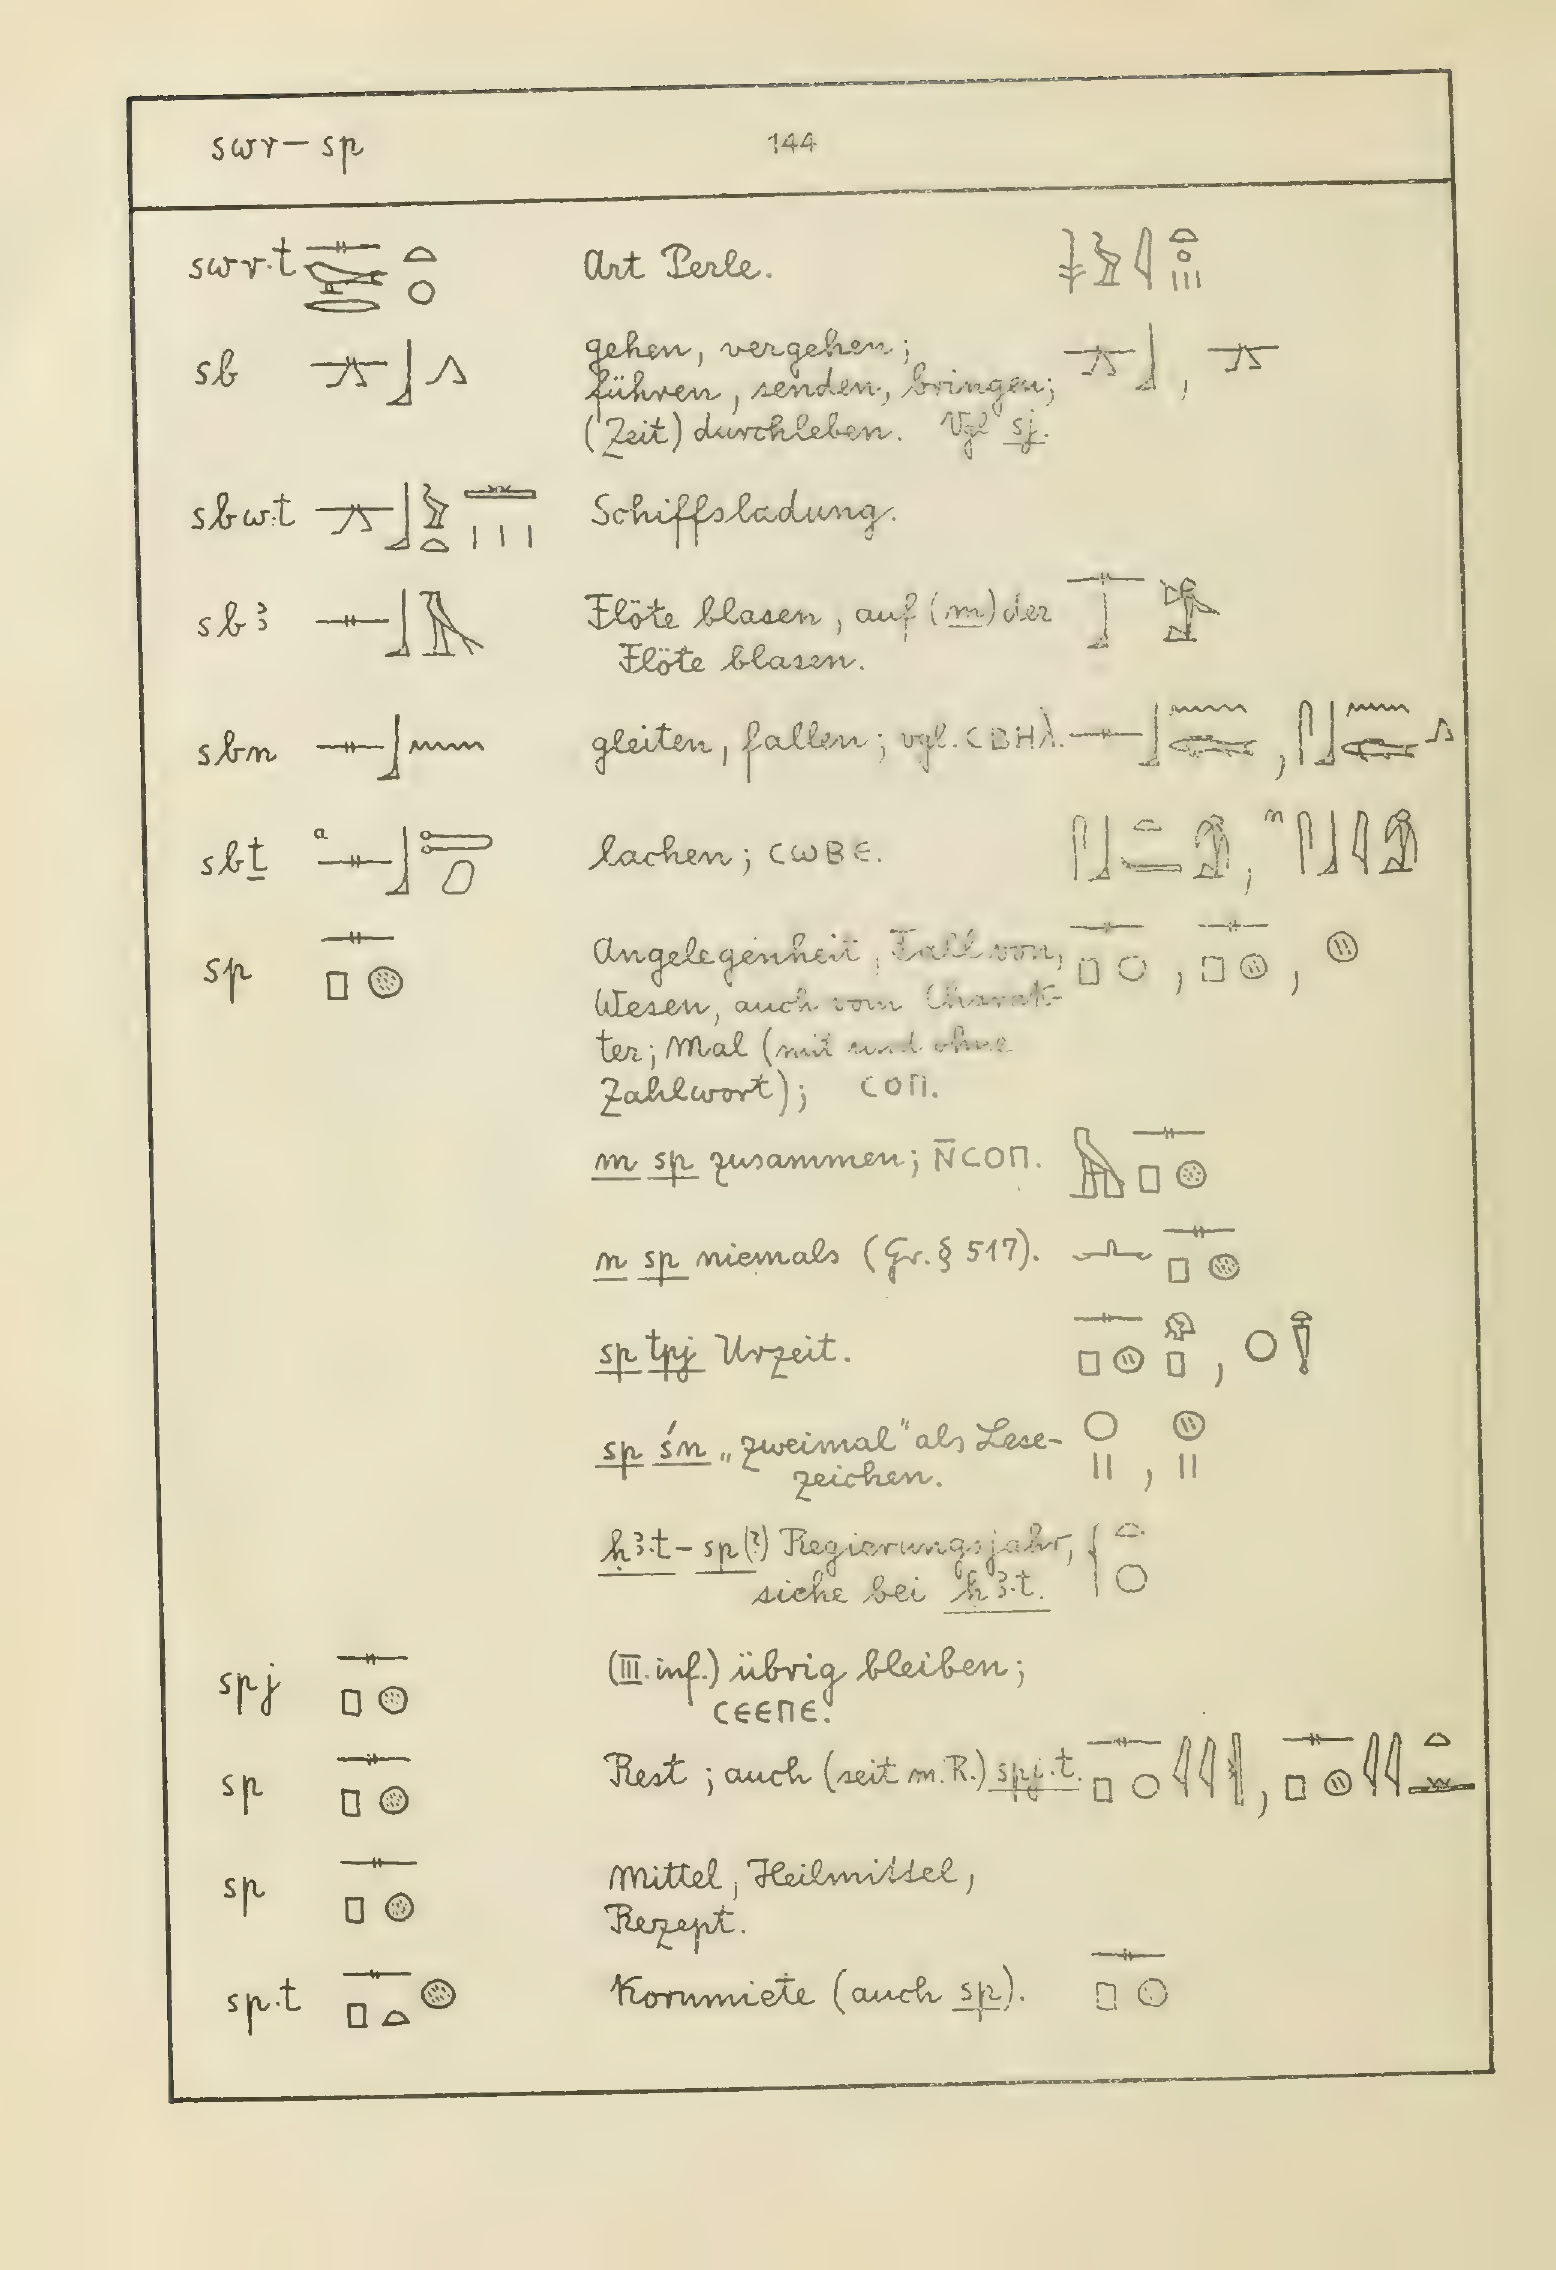 swr – sp 144
swr.t Art Perle.
sb gehen, vergehen;
führen, senden, bringen;
(Zeit) durchleben. Vgl sj.
sbw.t Schiffsladung.
sbꜣ Flöte blasen, auf (m) der
Flöte blasen.
sbn gleiten, fallen; vgl. ⲤⲂⲎλ.
sbṯ a lachen; ⲤⲰⲂⲈ. n
sp Angelegenheit, Fall von,
Wesen, auch vom Charak-
ter; Mal (mit und ohne
Zahlwort); ⲤⲞⲠ.
m sp zusammen; Ⲛ̄ⲤⲞⲠ.
n sp niemals (Gr. § 517).
sp tpj Urzeit.
sp śn „zweimal“ als Lese-
zeichen.
ḥꜣ.t – sp(?) Regierungsjahr,
siehe bei ḥꜣ.t.
spj (III. inf.) übrig bleiben;
ⲤⲈⲈⲠⲈ.
sp Rest; auch (seit m. R.) spj.t.
sp Mittel, Heilmittel,
Rezept.
sp.t Kornmiete (auch sp).